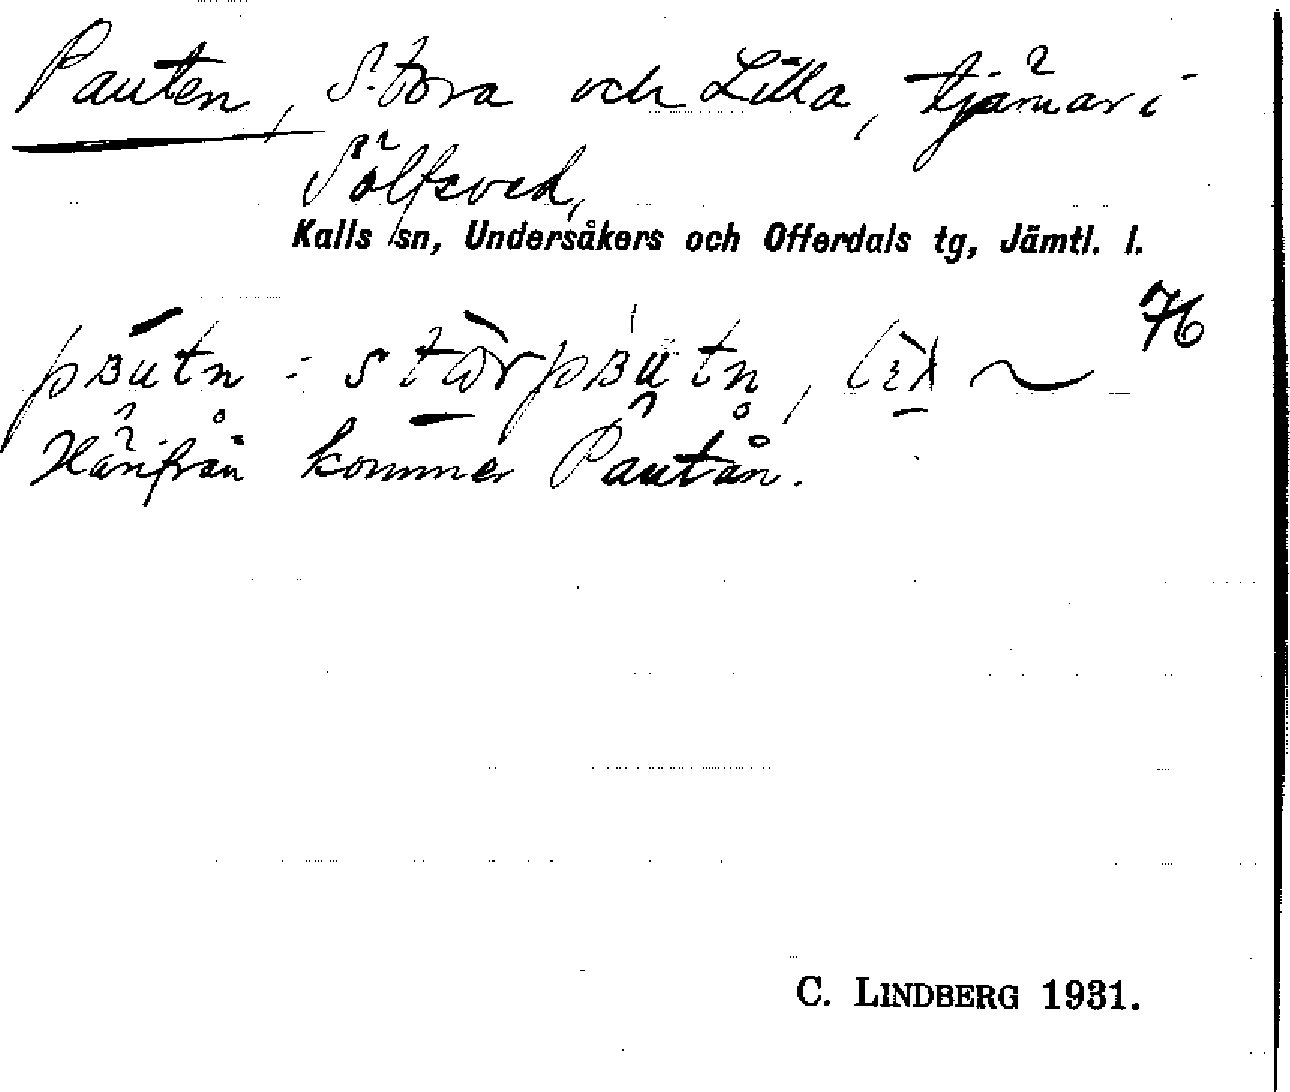 Pauten, Stora och Lilla, tjärnar i
Sölfsved,
Kalls sn, Undersåkers och Offerdals tg, Jämtl. l.
76
Härifrån kommer Pautån.
C. LINDBERG 1931.